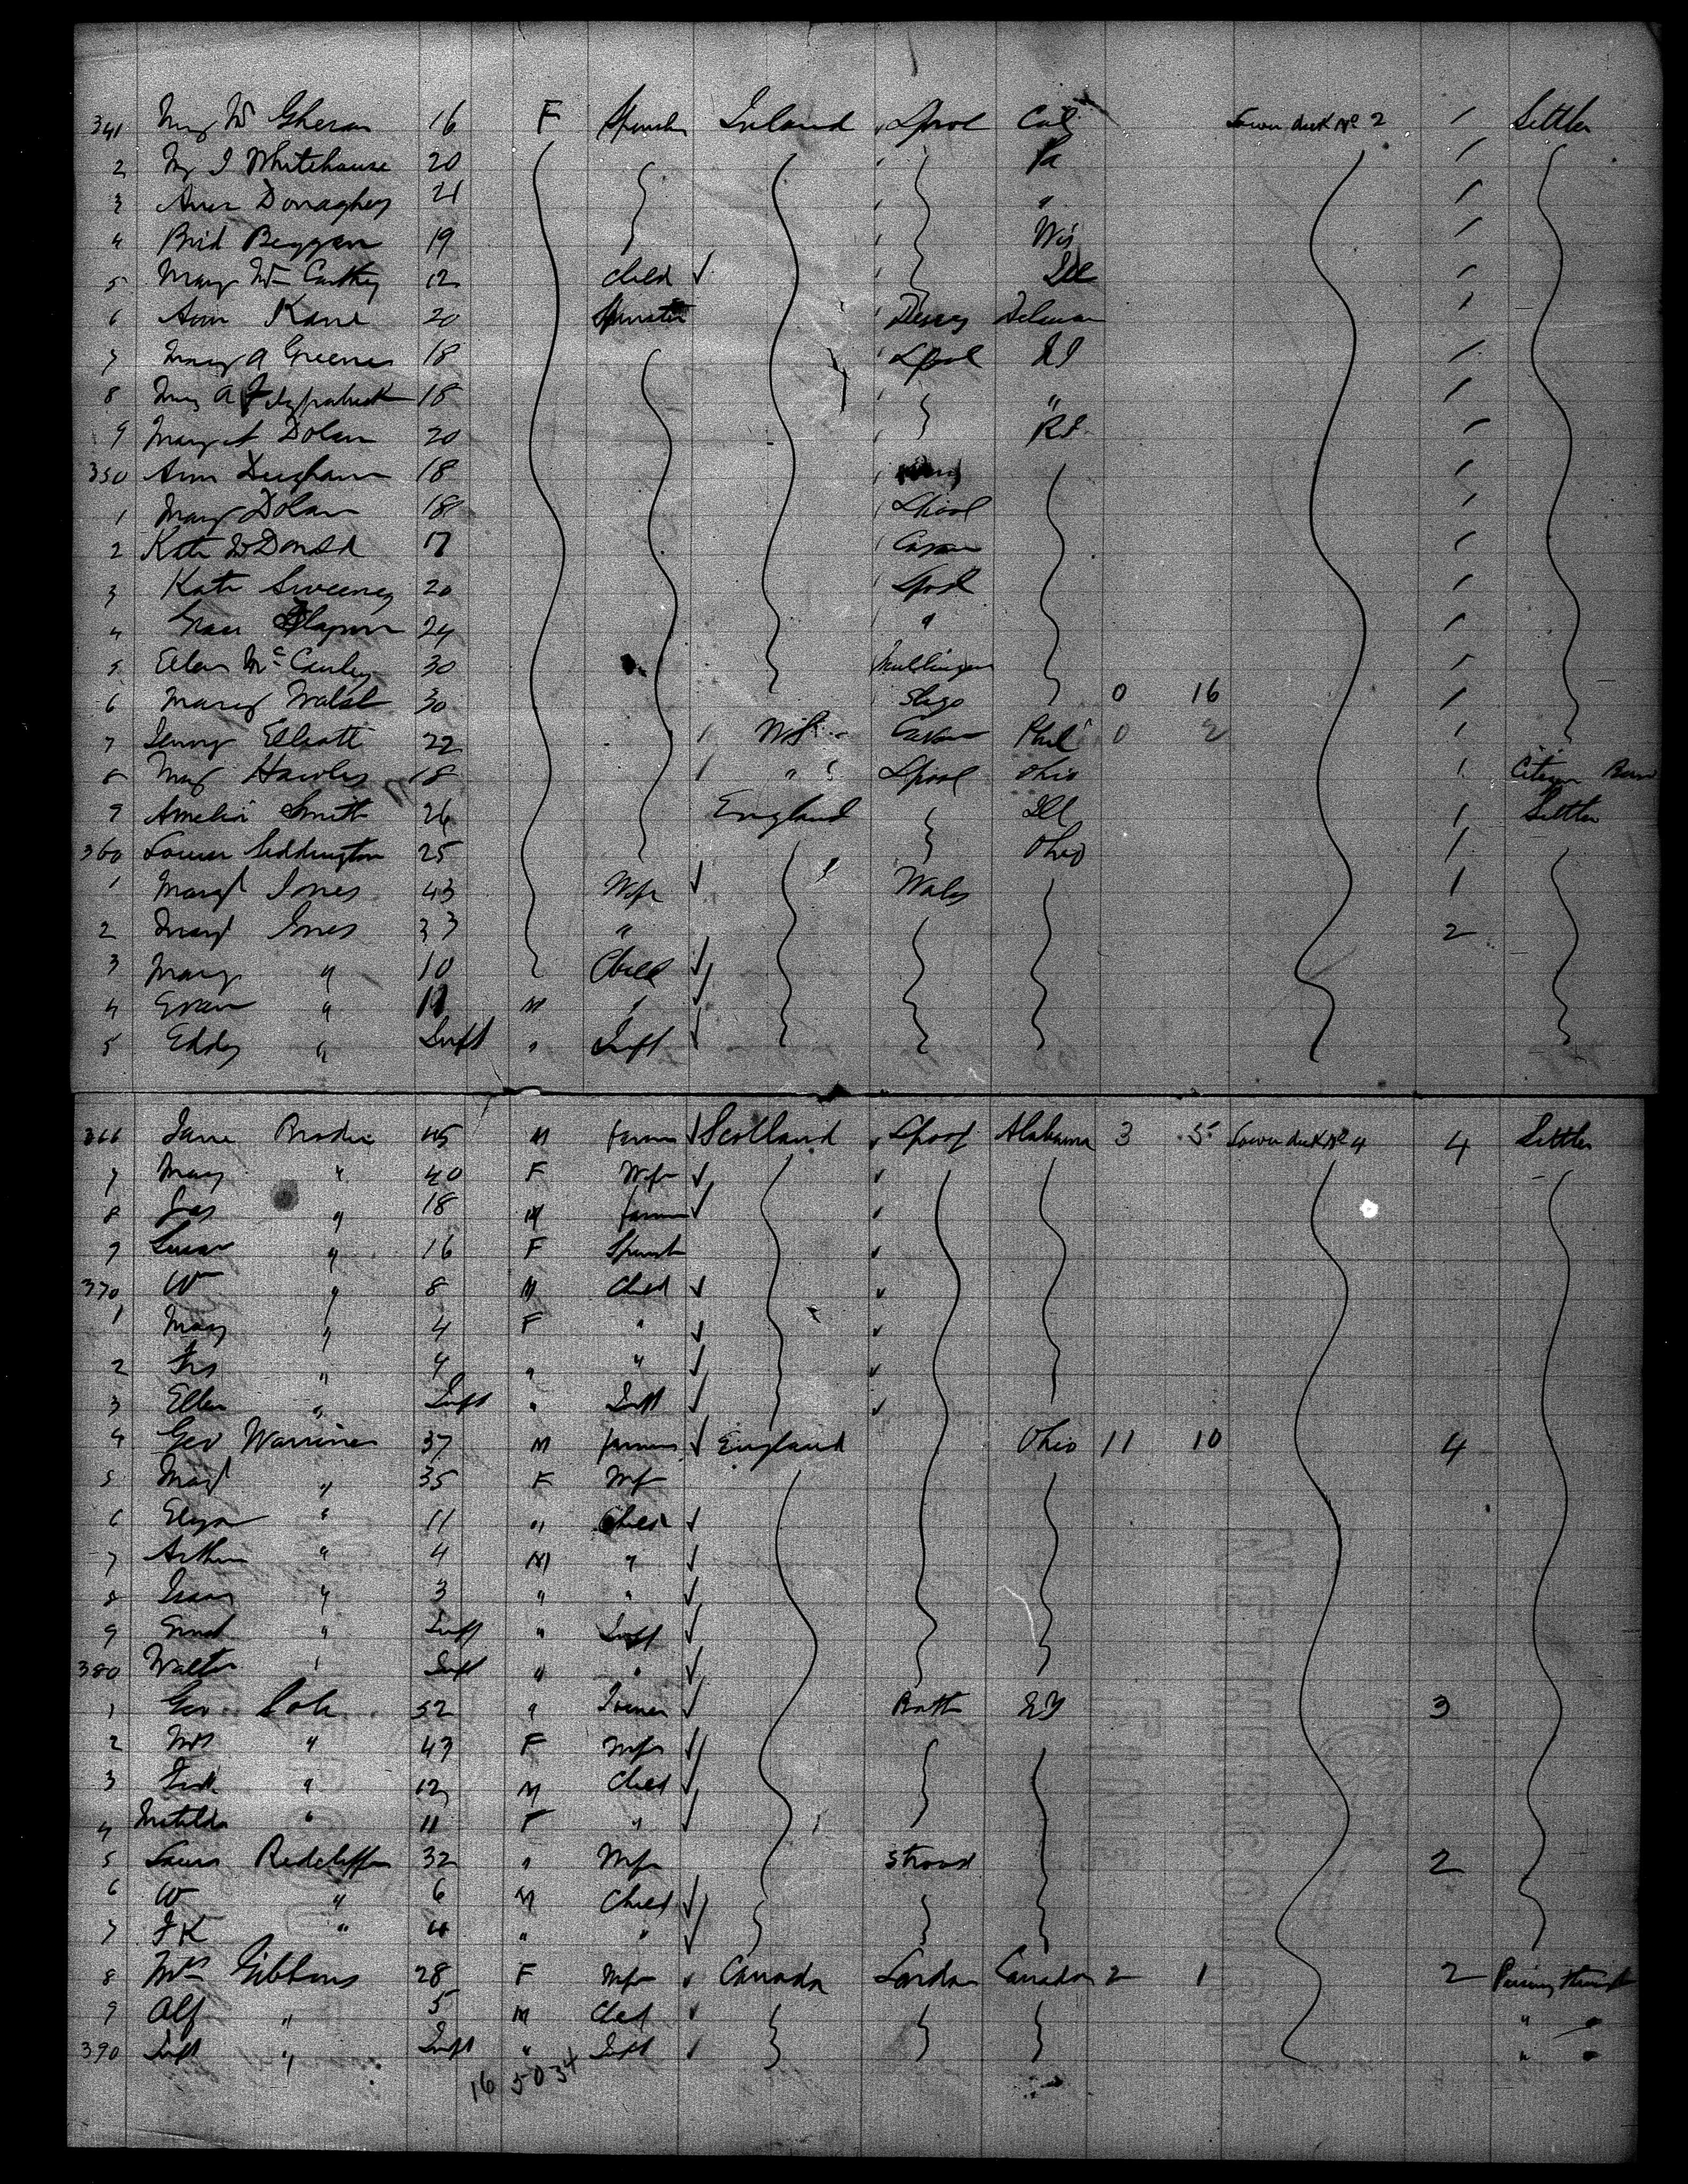 341 Mary McGheran 16 F Spinster Ireland Lpool Cal Lower deck No 2 1 Settler
2 My J Whitehouse 20 Pa 1
3 Ann Donaghey 21 " 1
4 Brid Beggan 19 Wis 1
5 Mary McCarthy 12 Child Ill 1
6 Ann Kane 20 Spinster Derry Delawar 1
7 Mary A Greenes 18 Lpool 1
8 My A Fitzpatrick 18 " 1
9 Margt Dolan 20 RI 1
350 Ann 18 1
1 Mary Dolan 18 Lpool 1
2 Kate McDonald 17 Cavan 1
3 Kate Sweeney 20 Lpool 1
4 24 " 1
5 Ellen McCauley 30 Mullingar 1
6 Mary Walsh 30 Sligo 0 16 1
7 Jenny Elliott 22 US Cavan Phil 0 2 1
8 My Hawley 18 " Lpool Ohio 1 Citizen
9 Amelia Smith 26 England Ill 1 Settler
360 Louisa Seddington 25 Ohio 1
1 Margt Jones 43 Wife Wales 1
2 Margt Jones 33 " 2
3 Mary " 10 Child
4 Evan " 11 M "
5 Eddy " Inft " Inft
366 Jane Brodie 45 M farmer Scotland Lpool Alabama 3 5 Lower deck No 4 4 Settler
7 Mary " 40 F Wife
8 Jas " 18 M farmer
9 Susan " 16 F Spinst
370 W " 8 M Child
1 Mary " 4 F "
2 " 4 " "
3 Ellen " Inft " Inft
4 Geo Warriner 37 M farmer England Ohio 11 10 4
5 Margt " 35 F Wife
6 Eliza " 11 " Child
7 Arthur " 4 M "
8 Isaac " 3 " "
9 Ernest " Inft " Inft
380 Walter " Inft " "
1 Geo Cole 52 " Joiner Bath NY 3
2 Mrs " 43 F Wife
3 " 12 M Child
4 Matilda " 11 F "
5 Laura Redcliffe 32 " Wife Stroud 2
6 W " 6 M Child
7 J K " 4 " "
8 Mrs Gibbons 28 F Wife Canada London Canada 2 1 2 Passing through
9 Alf " 5 M Child " "
390 Inft " Inft " Inft " "
16 50 34